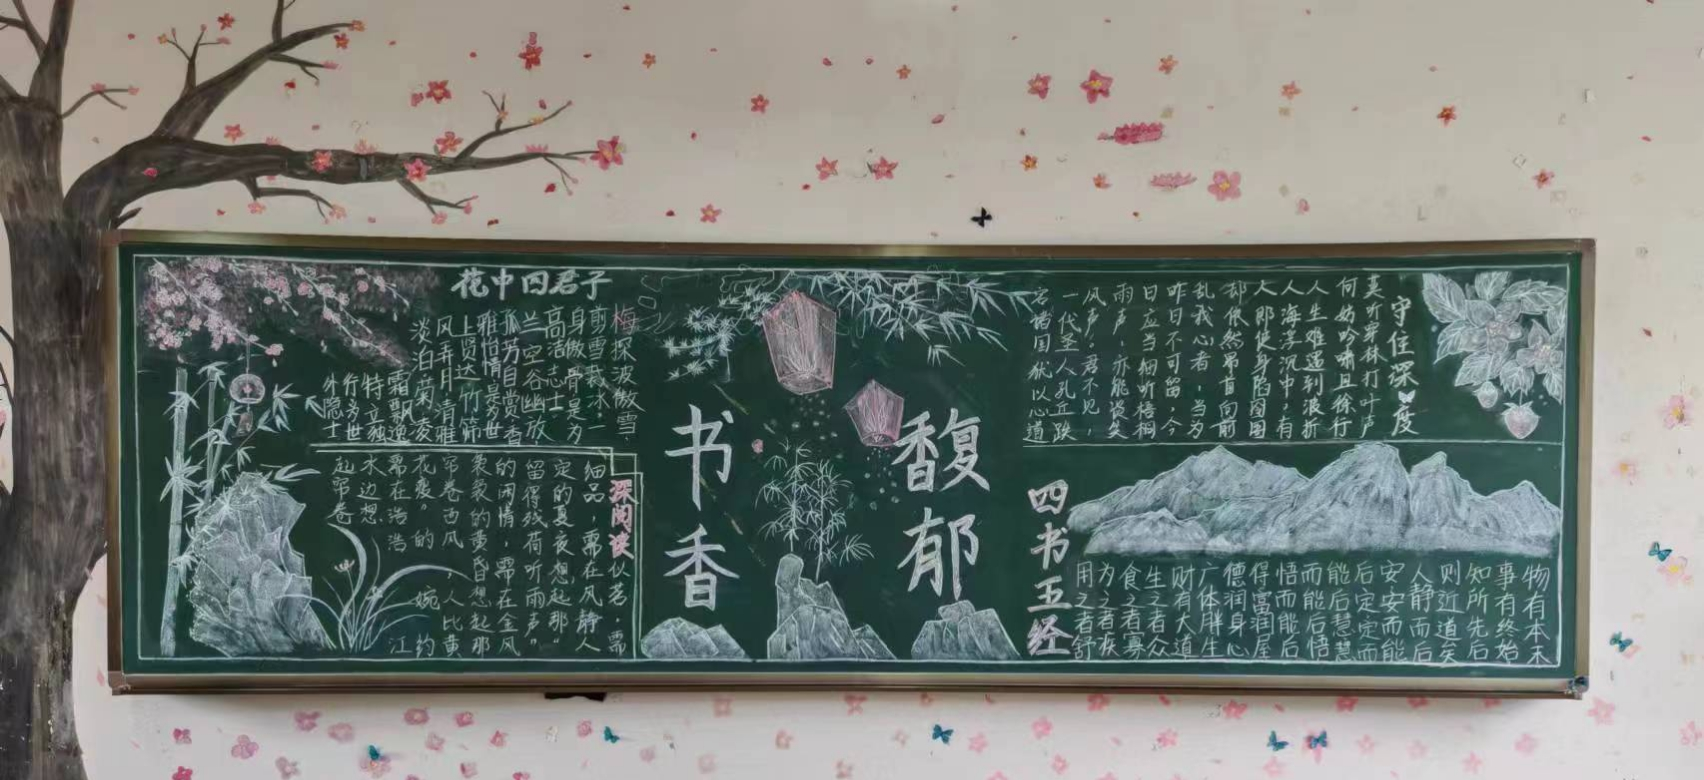 花中四君子
梅探波傲雪，
剪雪裁冰一
身傲骨是为
高洁志士
兰空谷幽放
孤芳自赏香
雅怡情是为世
上贤达竹筛
风弄月清雅
淡泊菊凌
霜飘逸
特立独
行为世
外隐士
深阅读似茗，需
细品，需在风静人
定的夏夜想起那“
留得残荷听雨声”
的闲情，需在金风
的黄昏想起那
帘卷西风，人比黄
花瘦”的婉约
需在浩浩江
水边想
起帘卷
书香
馥郁
守住深度
莫听穿林打叶声
何妨吟啸且徐行
人生难遇到波折
人海浮沉中，有
人即使身陷囹圄
却依然昂首向前
乱我心者，当为
昨日不可留，今
日应当细听梧桐
雨声，亦能谈笑
风声。君不见，
一代圣人孔丘跌
宕诸国犹以心道
四书五经
物有本末
事有终始
知所先后
则近道矣
人静而后
安安而能
后定定而
能后慧慧
而能后悟
悟而能后
得富润屋
德润身心
广体胖生
财有大道
生之者众
食之者寡
为之者疾
用之者舒